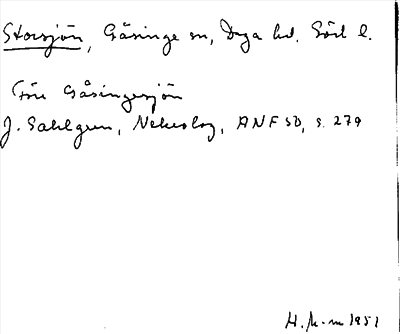 Storsjön, Gåsinge sn, Daga hd. Södl l.
Före Gåsingesjön
J. Sahlgren, Nekrolog, ANF 50, s. 279
H. M-m 1951